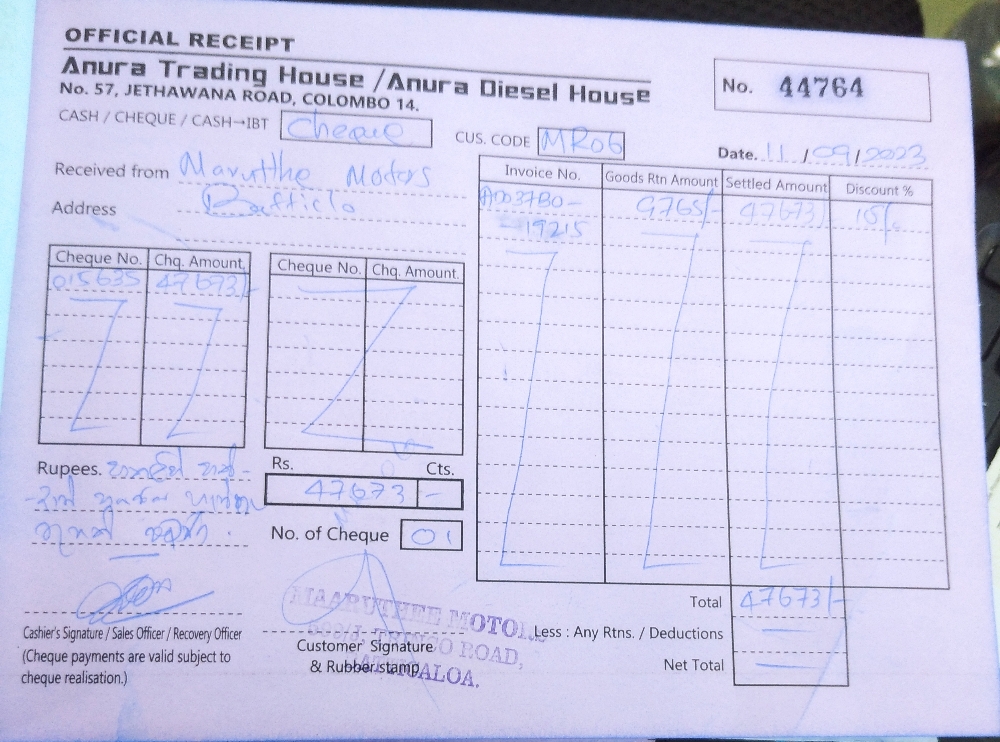 OFFICIAL RECEIPT
Anura Trading House /Anura Diesel House
No. 57, JETHAWANA ROAD, COLOMBO 14.
No. 44764
CASH / CHEQUE / CASH→IBT Cheque
CUS. CODE MR06
Date. 11 / 09 / 2023
Received from Marutthe Motors
Address
Invoice No. Goods Rtn Amount Settled Amount Discount %
AD037B0- 9765/- 47673/- 15%
19215
Cheque No. Chq. Amount. Cheque No. Chq. Amount.
015635 47673/-
Rupees.
Rs. Cts.
47673 -
No. of Cheque 01
Total 47673/-
Less : Any Rtns. / Deductions
Net Total
Cashier's Signature / Sales Officer / Recovery Officer
(Cheque payments are valid subject to
cheque realisation.)
Customer Signature
& Rubber stamp
MAARUTHEE MOTORS
ROAD,